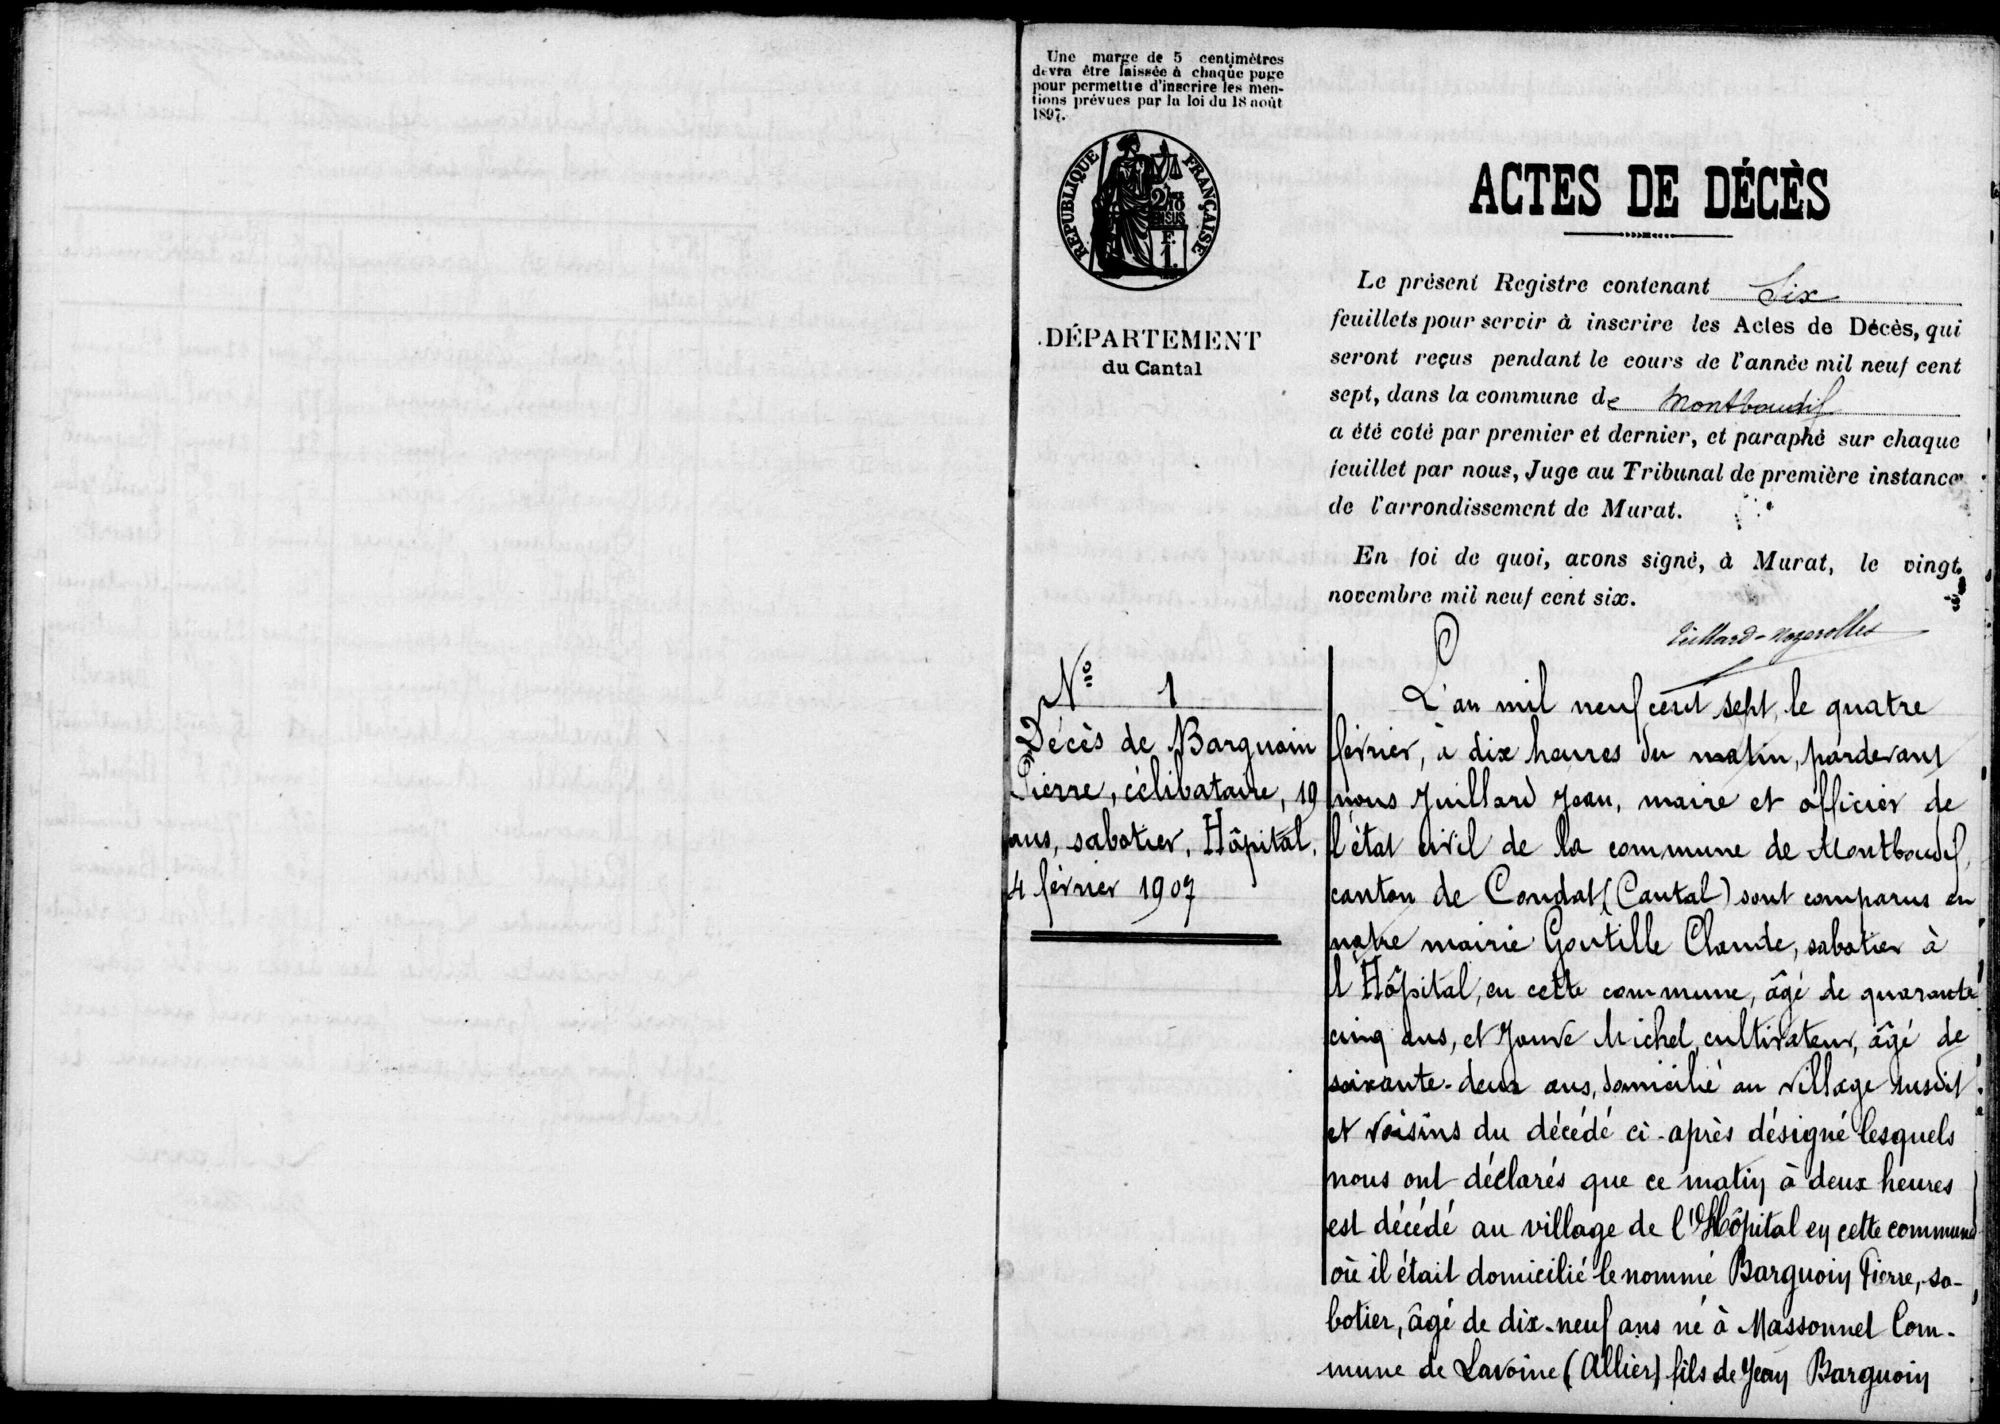 Une marge de 5 centimètres
devra être laissée à chaque page
pour permettre d'inscrire les men-
tions prévues par la loi du 18 août
1897.
RÉPUBLIQUE FRANÇAISE
2/10
EN SUS
F.
1.
DÉPARTEMENT
du Cantal
ACTES DE DÉCÈS
Le présent Registre contenant Six
feuillets pour servir à inscrire les Actes de Décès, qui
seront reçus pendant le cours de l'année mil neuf cent
sept, dans la commune de Montboudif
a été coté par premier et dernier, et paraphé sur chaque
feuillet par nous, Juge au Tribunal de première instance
de l'arrondissement de Murat.
En foi de quoi, avons signé, à Murat, le vingt
novembre mil neuf cent six.
No 1
Décès de Barguoin
Pierre, célibataire, 19
ans, sabotier, Hôpital,
4 février 1907
L'an mil neuf cent sept, le quatre
février, à dix heures du matin, pardevant
nous Juillard Jean, maire et officier de
l'état civil de la commune de Montboudif,
canton de Condat (Cantal) sont comparus en
notre mairie Goutille Claude, sabotier à
l'Hôpital, en cette commune, âgé de quarante
cinq ans, et Jouve Michel, cultivateur, âgé de
soixante-deux ans, domicilié au village susdit
et voisins du décédé ci-après désigné lesquels
nous ont déclarés que ce matin à deux heures
est décédé au village de l'Hôpital en cette commune
où il était domicilié le nommé Barguoin Pierre, sa-
botier, âgé de dix-neuf ans né à Massonnet Com-
mune de Lavoine (Allier) fils de Jean Barguoin